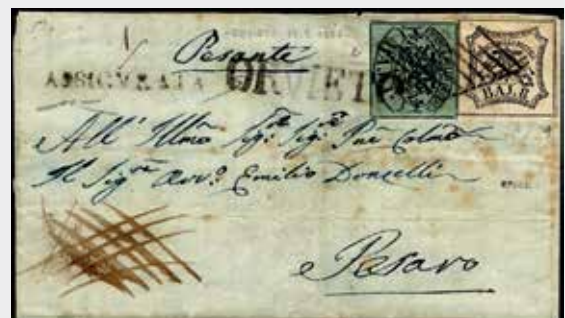 Pesante
ASSICURATA ORVIETO
All' Illmo Sigr. Sigr. Pne Colmo
Il Sigre Avv.º Emilio Donzelli
Pesaro
BAJ 8